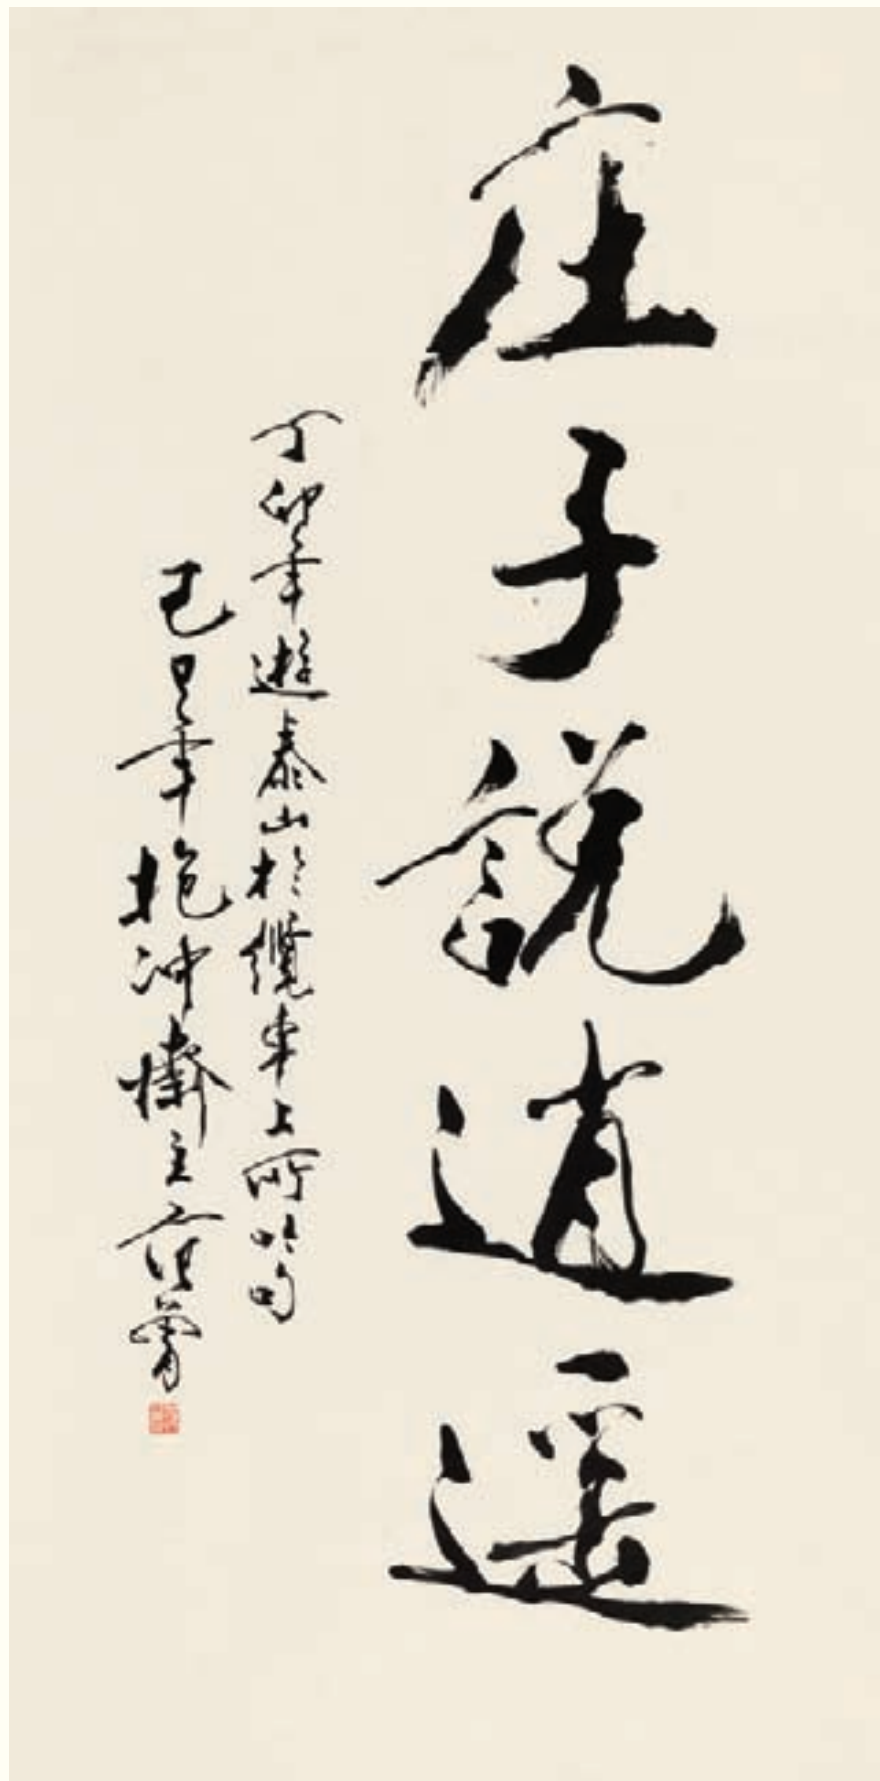 庄子說逍遥
丁卯年遊泰山於纜車上所吟句
己巳年抱冲齋主范曾